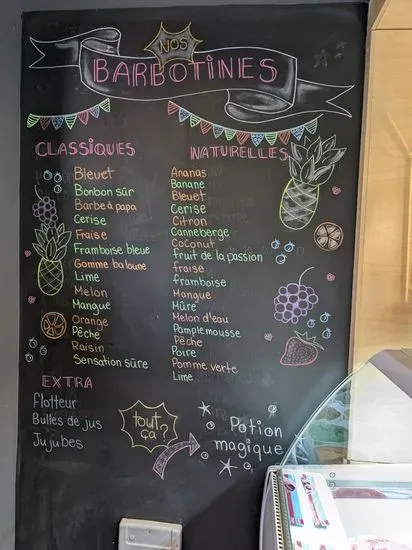 NOS
BARBOTINES
CLASSIQUES
Bleuet
Bonbon sûr
Barbe à papa
Cerise
Fraise
Framboise bleue
Gomme baloune
Lime
Melon
Mangue
Orange
Pêche
Raisin
Sensation sûre
NATURELLES
Ananas
Banane
Bleuet
Cerise
Citron
Canneberge
Coconut
fruit de la passion
fraise
framboise
Mangue
Mûre
Melon d'eau
Pamplemousse
Pêche
Poire
Pomme verte
Lime
EXTRA
Flotteur
Bulles de jus
Jujubes
tout
ça?
Potion
magique